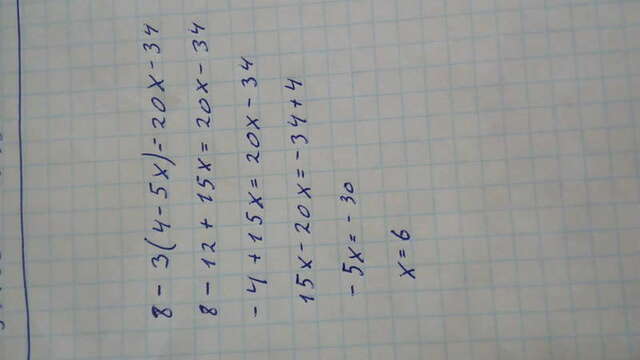 8 - 3(4 - 5x) = 20x - 34
8 - 12 + 15x = 20x - 34
- 4 + 15x = 20x - 34
15x - 20x = - 34 + 4
- 5x = - 30
x = 6